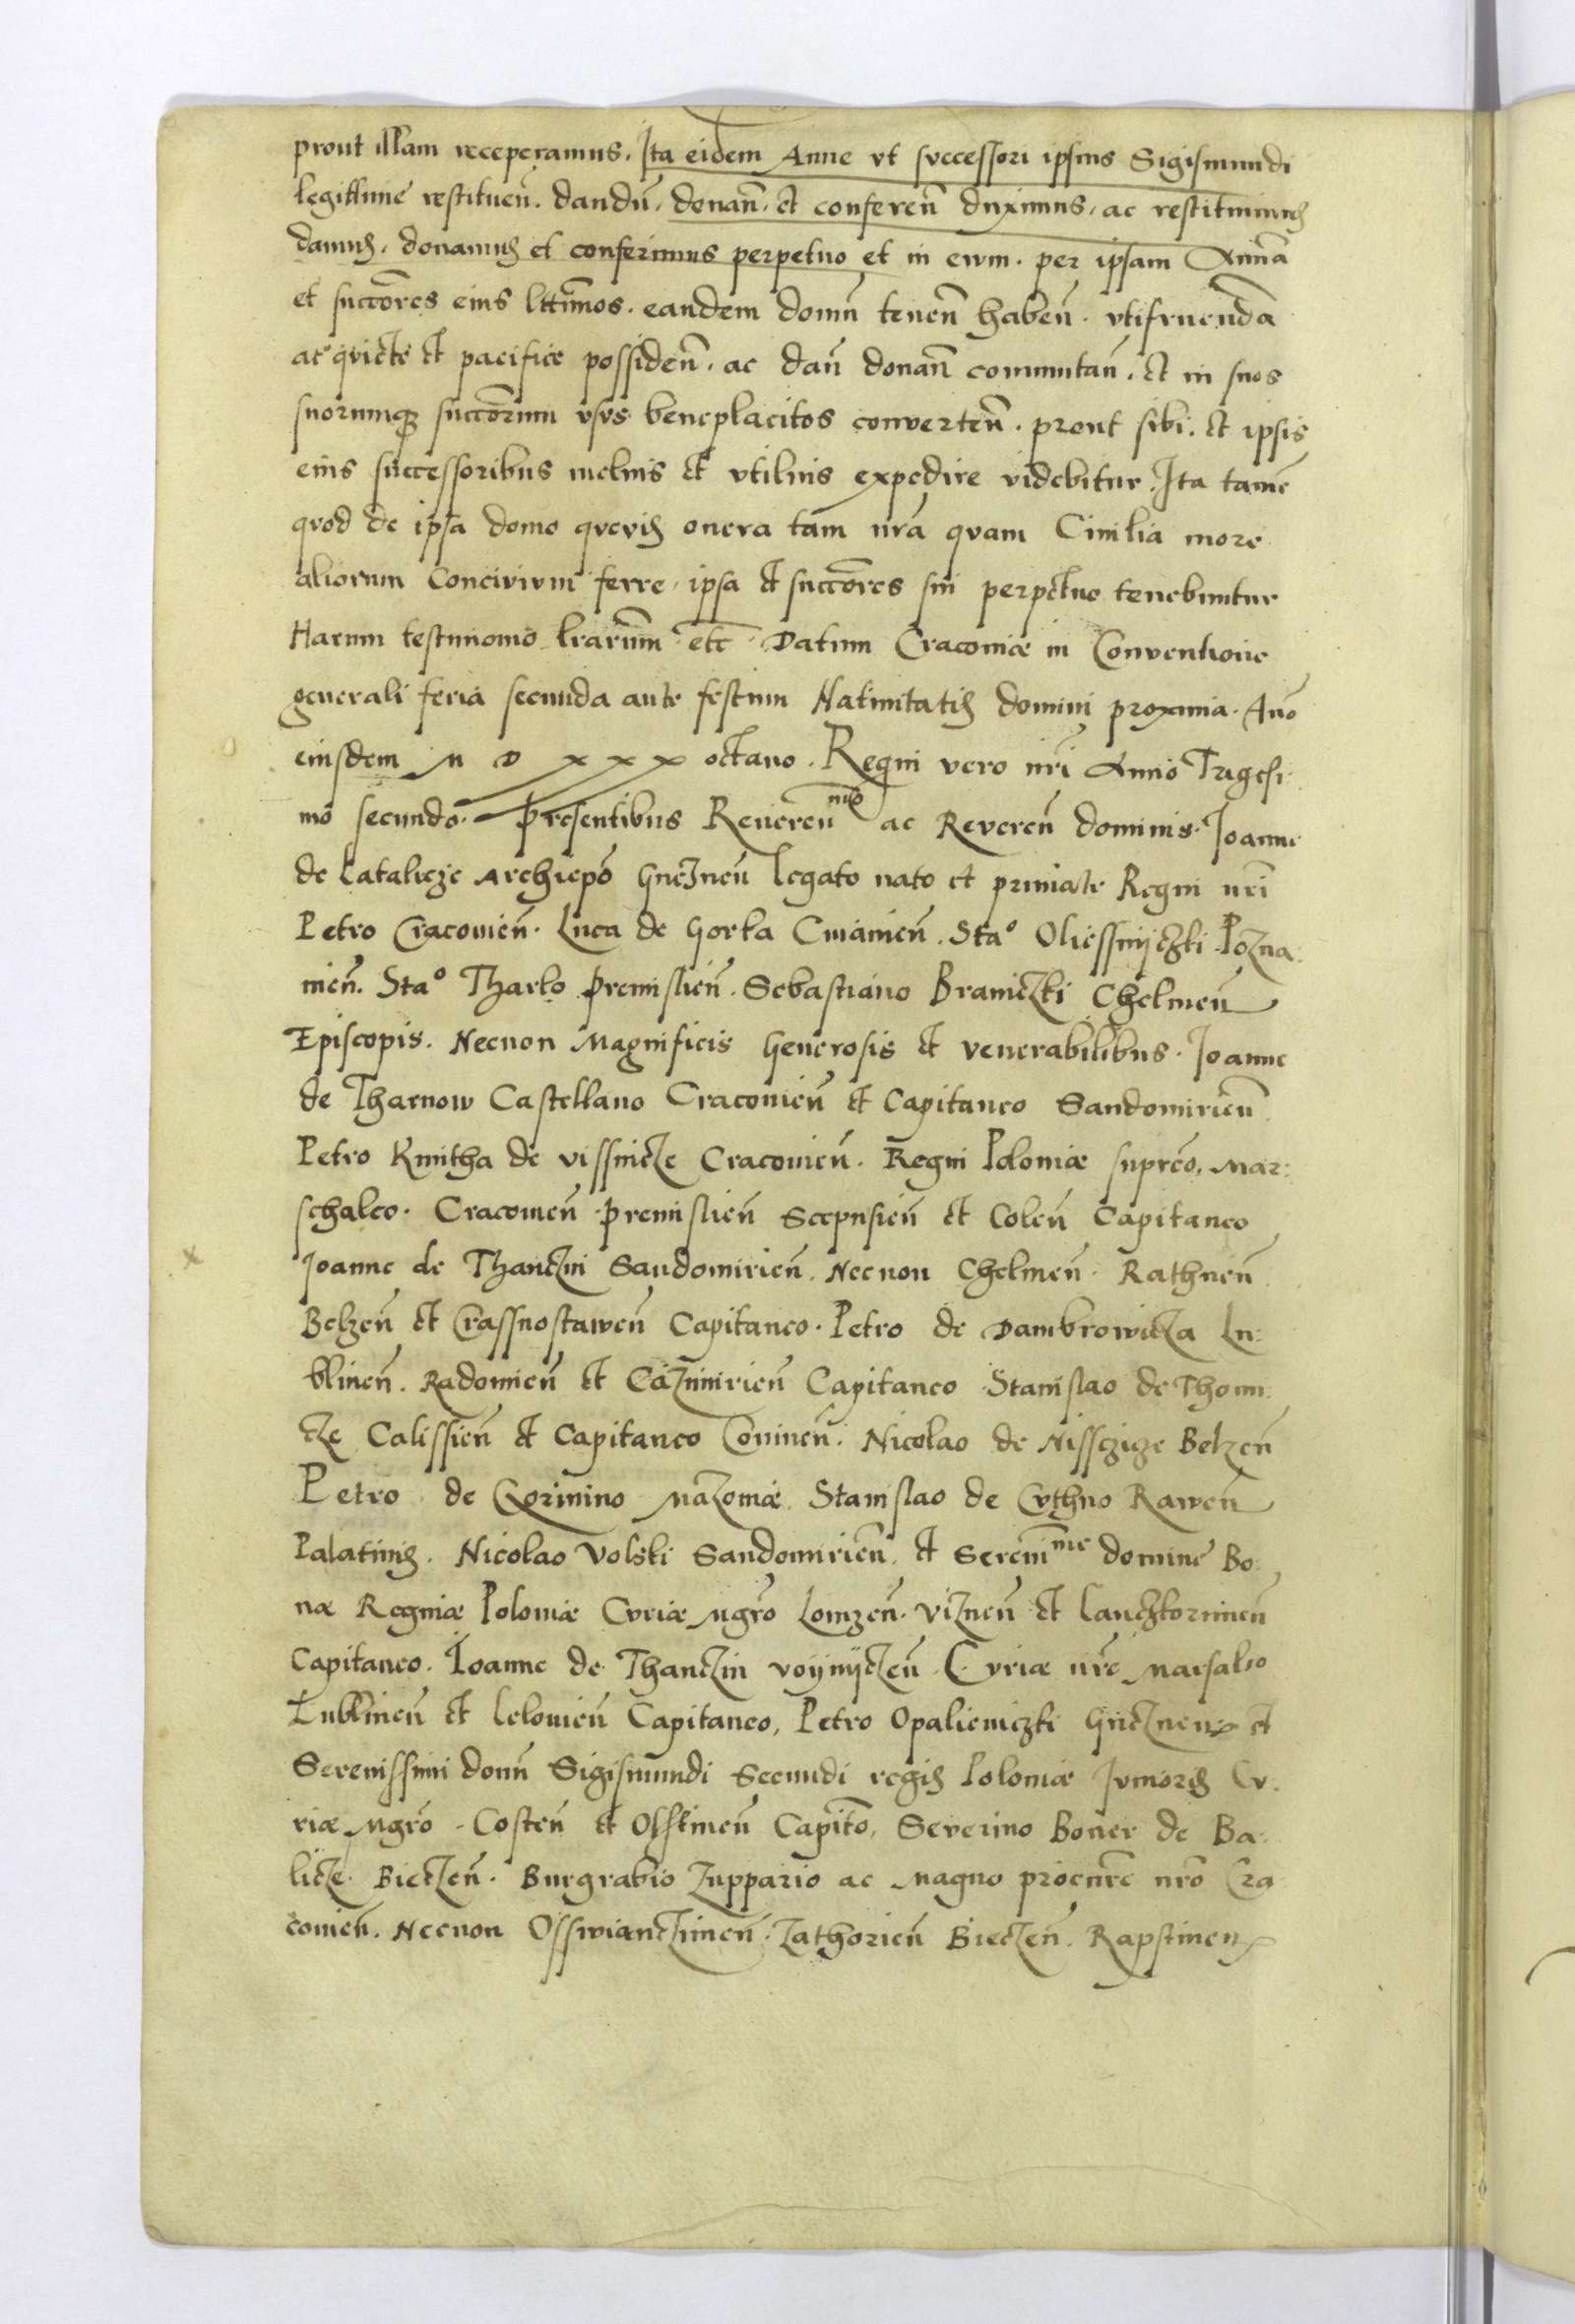 prout illam receperamus. Ita eidem Anne vt svccessori ipsius Sigismundi
legittime restitueñ. dandũ. donañ. et confereñ duximus. ac restituimus
damus. donamus et conferimus perpetuo et in evum. per ipsam Annã
et succões eius lttimos. eandem domũ teneñ habeñ. vtifruendã
ac qviete et pacifice possideñ. ac dañ donañ commutañ. et in suos
suorumq̃ succõrum vsvs beneplacitos converteñ. prout sibi. et ipsis
eius successoribus melius et vtilius expedire videbitur. Ita tamẽ
qvod de ipsa domo qvevis onera tam nrã qvam Ciuilia more
aliorum Concivivm ferre. ipsa et succões sui perpetuo tenebuntur
Harum testimonio lrarum̃ etc̃. Datum Cracouiæ in Conventione
generali feria secunda ante festum Natiuitatis domini proxima. Año
eiusdem M D XXX octauo. Regni vero nrĩ Anno Trigesi:
mo secundo. Presentibus Reuereñmo ac Revereñ dominis. Ioanne
de Latalicze Archiepõ Gnezneñ legato nato et primate Regni nrĩ
Petro Cracouieñ. Luca de Gorka Cuiauieñ. Stao Oliessnyczki Pozna:
nieñ. Stao Tharlo Premislieñ. Sebastiano Braniczki Chelmeñ
Episcopis. Necnon Magnificis Generosis et venerabilibus. Ioanne
de Tharnow Castellano Cracouieñ et Capitaneo Sandomirieñ
Petro Kmitha de vissnicze Cracouieñ. Regni Poloniæ suprẽo. Mar:
schalco. Cracouieñ. Premislieñ Scepusieñ et Coleñ Capitaneo
Ioanne de Thanczin Sandomirieñ. Necnon Chelmeñ. Rathneñ
Belzeñ et Crassnostaweñ Capitaneo. Petro de Dambrowicza Lu:
blineñ. Radomieñ et Cazimirieñ Capitaneo Stanislao de Thomi:
cze Calissieñ et Capitaneo Conineñ. Nicolao de Nissczicze Belzeñ
Petro de Gorinino Mazouiæ Stanislao de Cvthno Raweñ
Palatinis. Nicolao Volski Sandomirieñ. et Sereniñme domine Bo:
næ Reginæ Poloniæ Cvriæ Mgrõ Lomzeñ. Vizneñ et Lanczkorunieñ
Capitaneo. Ioanne de Thanczin voynyczeñ Cvriæ nrẽ Marsalco
Lublineñ et Lelouieñ Capitaneo, Petro Opalieniczki Gnezneñ et
Serenissimi domĩ Sigismundi Secundi regis Poloniæ Ivnioris Cv:
riæ Mgrõ. Costeñ et Olstineñ Capitõ, Severino Boner de Ba:
licze. Bieczeñ. Burgrabio Zuppario ac Magno procurẽ nrõ Cra
couieñ. Necnon Osswiancziměñ. Zathorieñ Bieczeñ. Rapstineñ